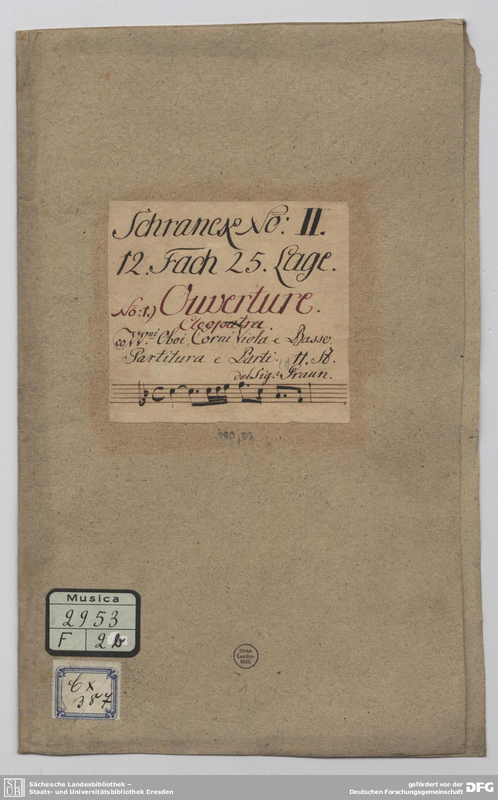 Schranck No: II.
12. Fach 25. Lage.
No: 1.) Ouverture.
Cleopatra.
co VV.ni Oboi Corni Viola e Basso.
Partitura e Parti. 11. St.
del Sigr. Graun.
Musica
2953
F 2b
Cx
387
Sächs.
Landes-
Bibl.
Sächsische Landesbibliothek –
Staats- und Universitätsbibliothek Dresden
gefördert von der
Deutschen Forschungsgemeinschaft
DFG